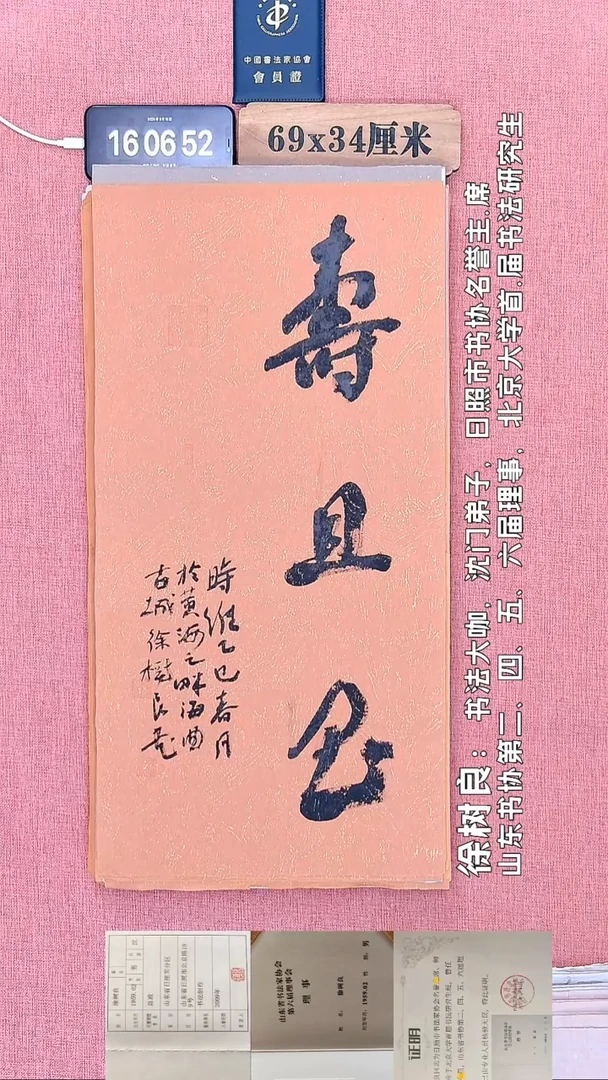 中國書法家協會
會員證
16 06 52
69x34厘米
壽且昌
時維乙巳春月
於黄海之畔海曲
古城徐樹良書
徐树良：书法大咖，沈门弟子，日照市书协名誉主.席
山东书协第二、四、五、六届理事，北京大学首.届书法研究生
山东省书法家协会
第六届理事会
理事
徐树良
1959.02
男
证明